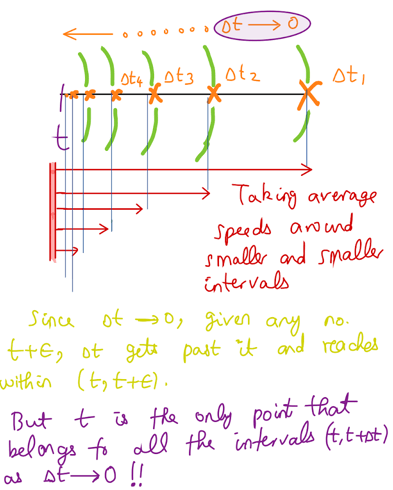 Δt → 0
Δt4 Δt3 Δt2 Δt1
t
Taking average
speeds around
smaller and smaller
intervals
Since Δt → 0, given any no.
t+ε, Δt gets past it and reaches
within (t, t+ε).
But t is the only point that
belongs to all the intervals (t, t+Δt)
as Δt → 0 !!